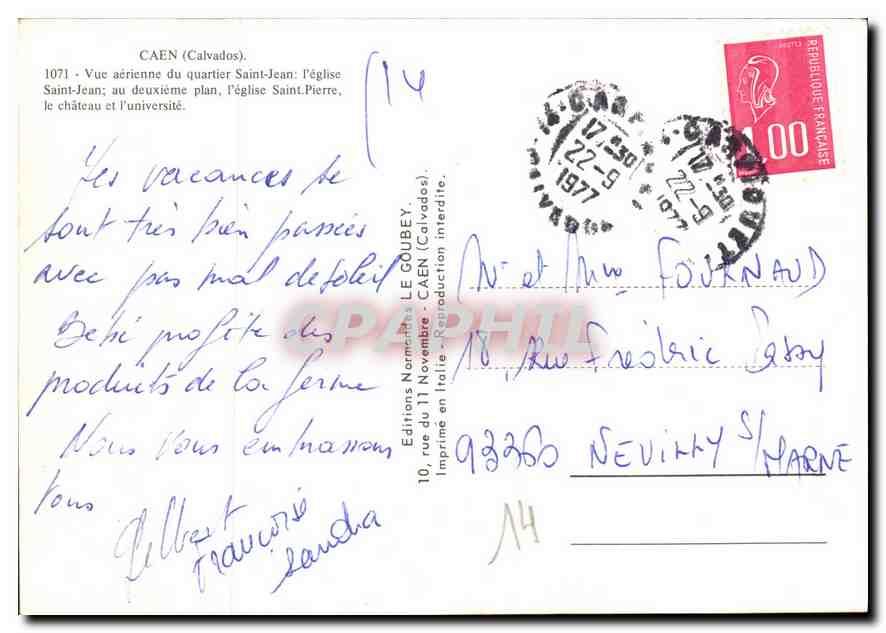 CAEN (Calvados).
1071 - Vue aérienne du quartier Saint-Jean: l'église
Saint-Jean; au deuxième plan, l'église Saint.Pierre,
le château et l'université.
14
Les vacances se
sont très bien passées
avec pas mal de soleil
Bébé profite des
produits de la ferme
Nous vous embrassons
tous
Gilbert
Françoise
Sandra
Editions Normandes LE GOUBEY.
10, rue du 11 Novembre - CAEN (Calvados).
Imprimé en Italie - Reproduction interdite.
REPUBLIQUE FRANÇAISE
1,00
17 H 30
22-9
1977
17 H 30
22-9
1977
Mr et Mme FOURNAUD
18, Rue Frédéric Passy
93360 NEUILLY S/
MARNE
14
CPAPHIL